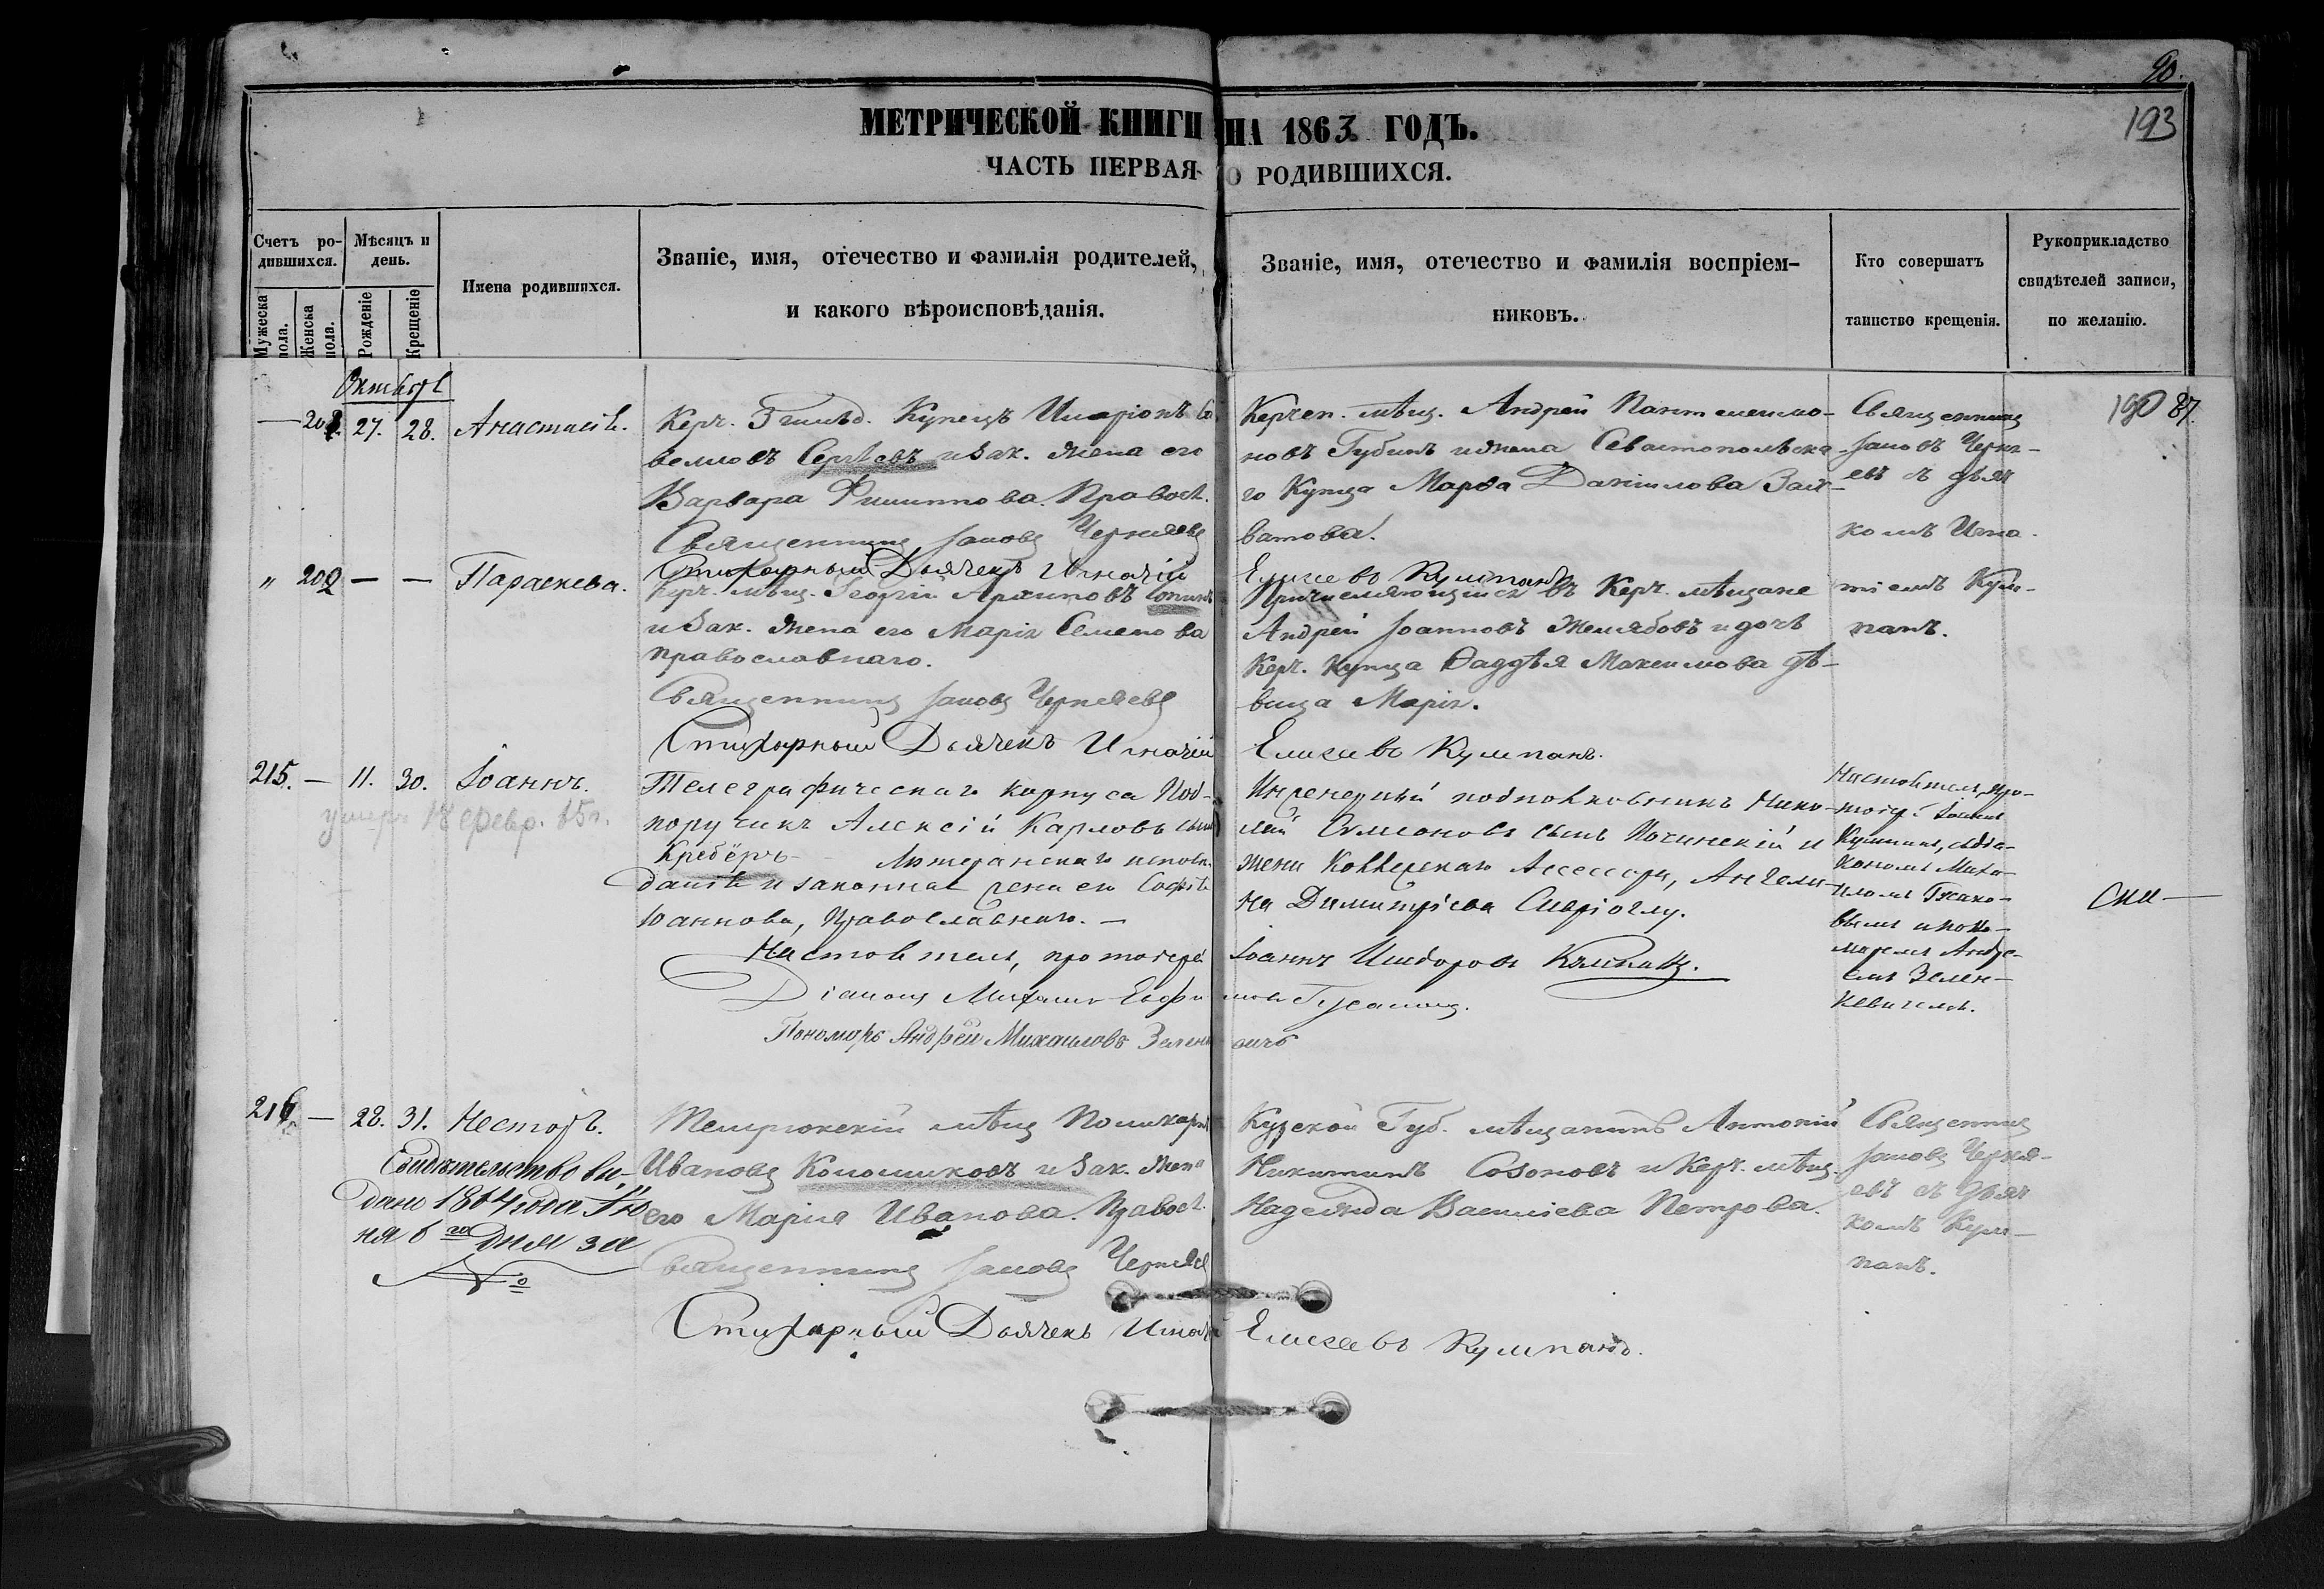 90.
193
МЕТРИЧЕСКОЙ КНИГИ НА 1863 ГОДЪ.
ЧАСТЬ ПЕРВАЯ О РОДИВШИХСЯ.
Счетъ ро-
дившихся.
Мужеска пола.
Женска пола.
Мѣсяцъ и
день.
Рожденіе
Крещеніе
Имена родившихся.
Званіе, имя, отечество и фамилія родителей,
и какого вѣроисповѣданія.
Званіе, имя, отечество и фамилія воспріем-
никовъ.
Кто совершатъ
таинство крещенія.
Рукоприкладство
свидѣтелей записи,
по желанію.
Октябрь
— 27. 28. Анастасія.
Керч. 3 гильд. Купецъ Иларіонъ
велловъ Сергѣевъ и зак. жена его
Варвара Филиппова. Правосл.
Священникъ Іаковъ Черняевъ
Стихарный Дьячекъ Игнатій Елисеевъ Кулпанъ
Керчен. мѣщ. Андрей Пантелеимо-
новъ Губинъ и жена Севастопольска-
го Купца Марѳа Даніилова
ватова.
Священникъ
Іаковъ Черня-
евъ съ дьяч-
комъ Игна-
тіемъ Кулм-
панъ.
190 87.
„ 202 — — Параскева.
Керч. мѣщ. Георгій Архиповъ
и зак. жена его Марія Семенова
православнаго.
Священникъ Іаковъ Черняевъ
Стихарный Дьячекъ Игнатій Елисеевъ Кулпанъ.
Причисляющійся въ Керч. мѣщане
Андрей Іоанновъ Желябовъ и дочь
Керч. купца Ѳаддѣя Максимова дѣ-
вица Марія.
215. — 11. 30. Іоаннъ.
умеръ 18 февр. 65 г.
Телеграфическаго корпуса Под-
поручикъ Алексій Карловъ сынъ
Кребёръ Лютеранскаго исповѣ-
данія и законная жена его Софія
Іоаннова, Православнаго. —
Настоятель, протоіерей Іоаннъ
Діаконъ Михаилъ
Пономарь Андрей Михаиловъ
Инженерный подполковникъ Нико-
лай Симеоновъ сынъ и
жена Коллежскаго Ассесора, Ангели-
на Димитріева
Настоятель, про-
тоіерей Іоаннъ
съ діа-
кономъ Миха-
иломъ Гусако-
вымъ и поно-
маремъ Андре-
емъ Зелен-
кевичемъ.
216. — 28. 31. Несторъ.
Свидѣтельство вы-
дано 1864 года Ію-
ня 6го дня за
№
Темрюкскій мѣщ. Поликарпъ
Ивановъ Колошиковъ и зак. жена
его Марія Иванова. Правосл.
Священникъ Іаковъ Черняевъ
Стихарный Дьячекъ Игнатій Елисеевъ Кулпанъ.
Курской Губ. мѣщанинъ Антоній
Никитинъ Созоновъ и Керч. мѣщ.
Надежда Василіева Петрова.
Священникъ
Іаковъ Черня-
евъ съ дьяч-
комъ Кулм-
панъ.